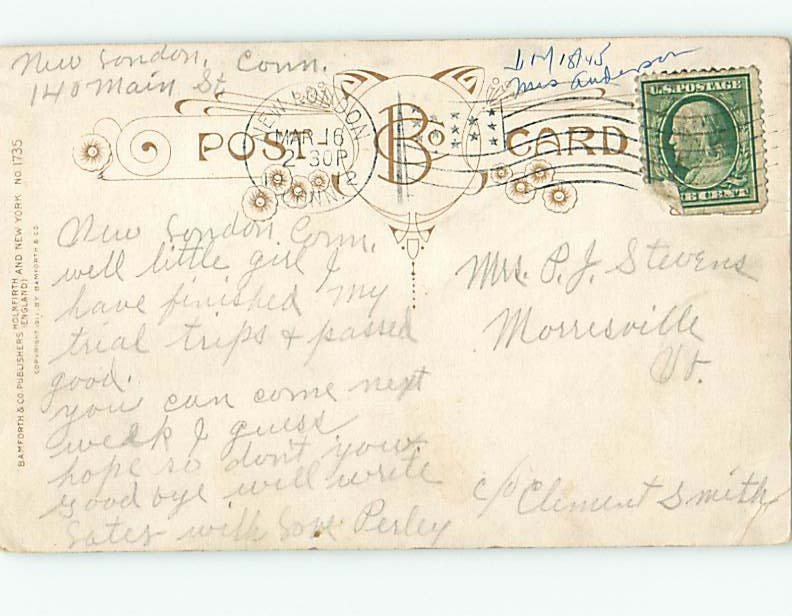 New London, Conn.
140 Main St
Mrs Anderson
POST CARD
B Co
NEW LONDON
MAR 16
2-30P
1912
CONN.
U.S. POSTAGE
CENT
BAMFORTH & CO PUBLISHERS HOLMFIRTH AND NEW YORK No. 1735
(ENGLAND)
COPYRIGHT 1911 BY BAMFORTH & CO
New London, Conn.
well little girl I
have finished my
trial trips & passed
good.
you can come next
week I guess
hope so don't you.
Good bye will write
Later with Love Perley
Mrs. P. J. Stevens
Morrisville
Vt.
c/o Clement Smith